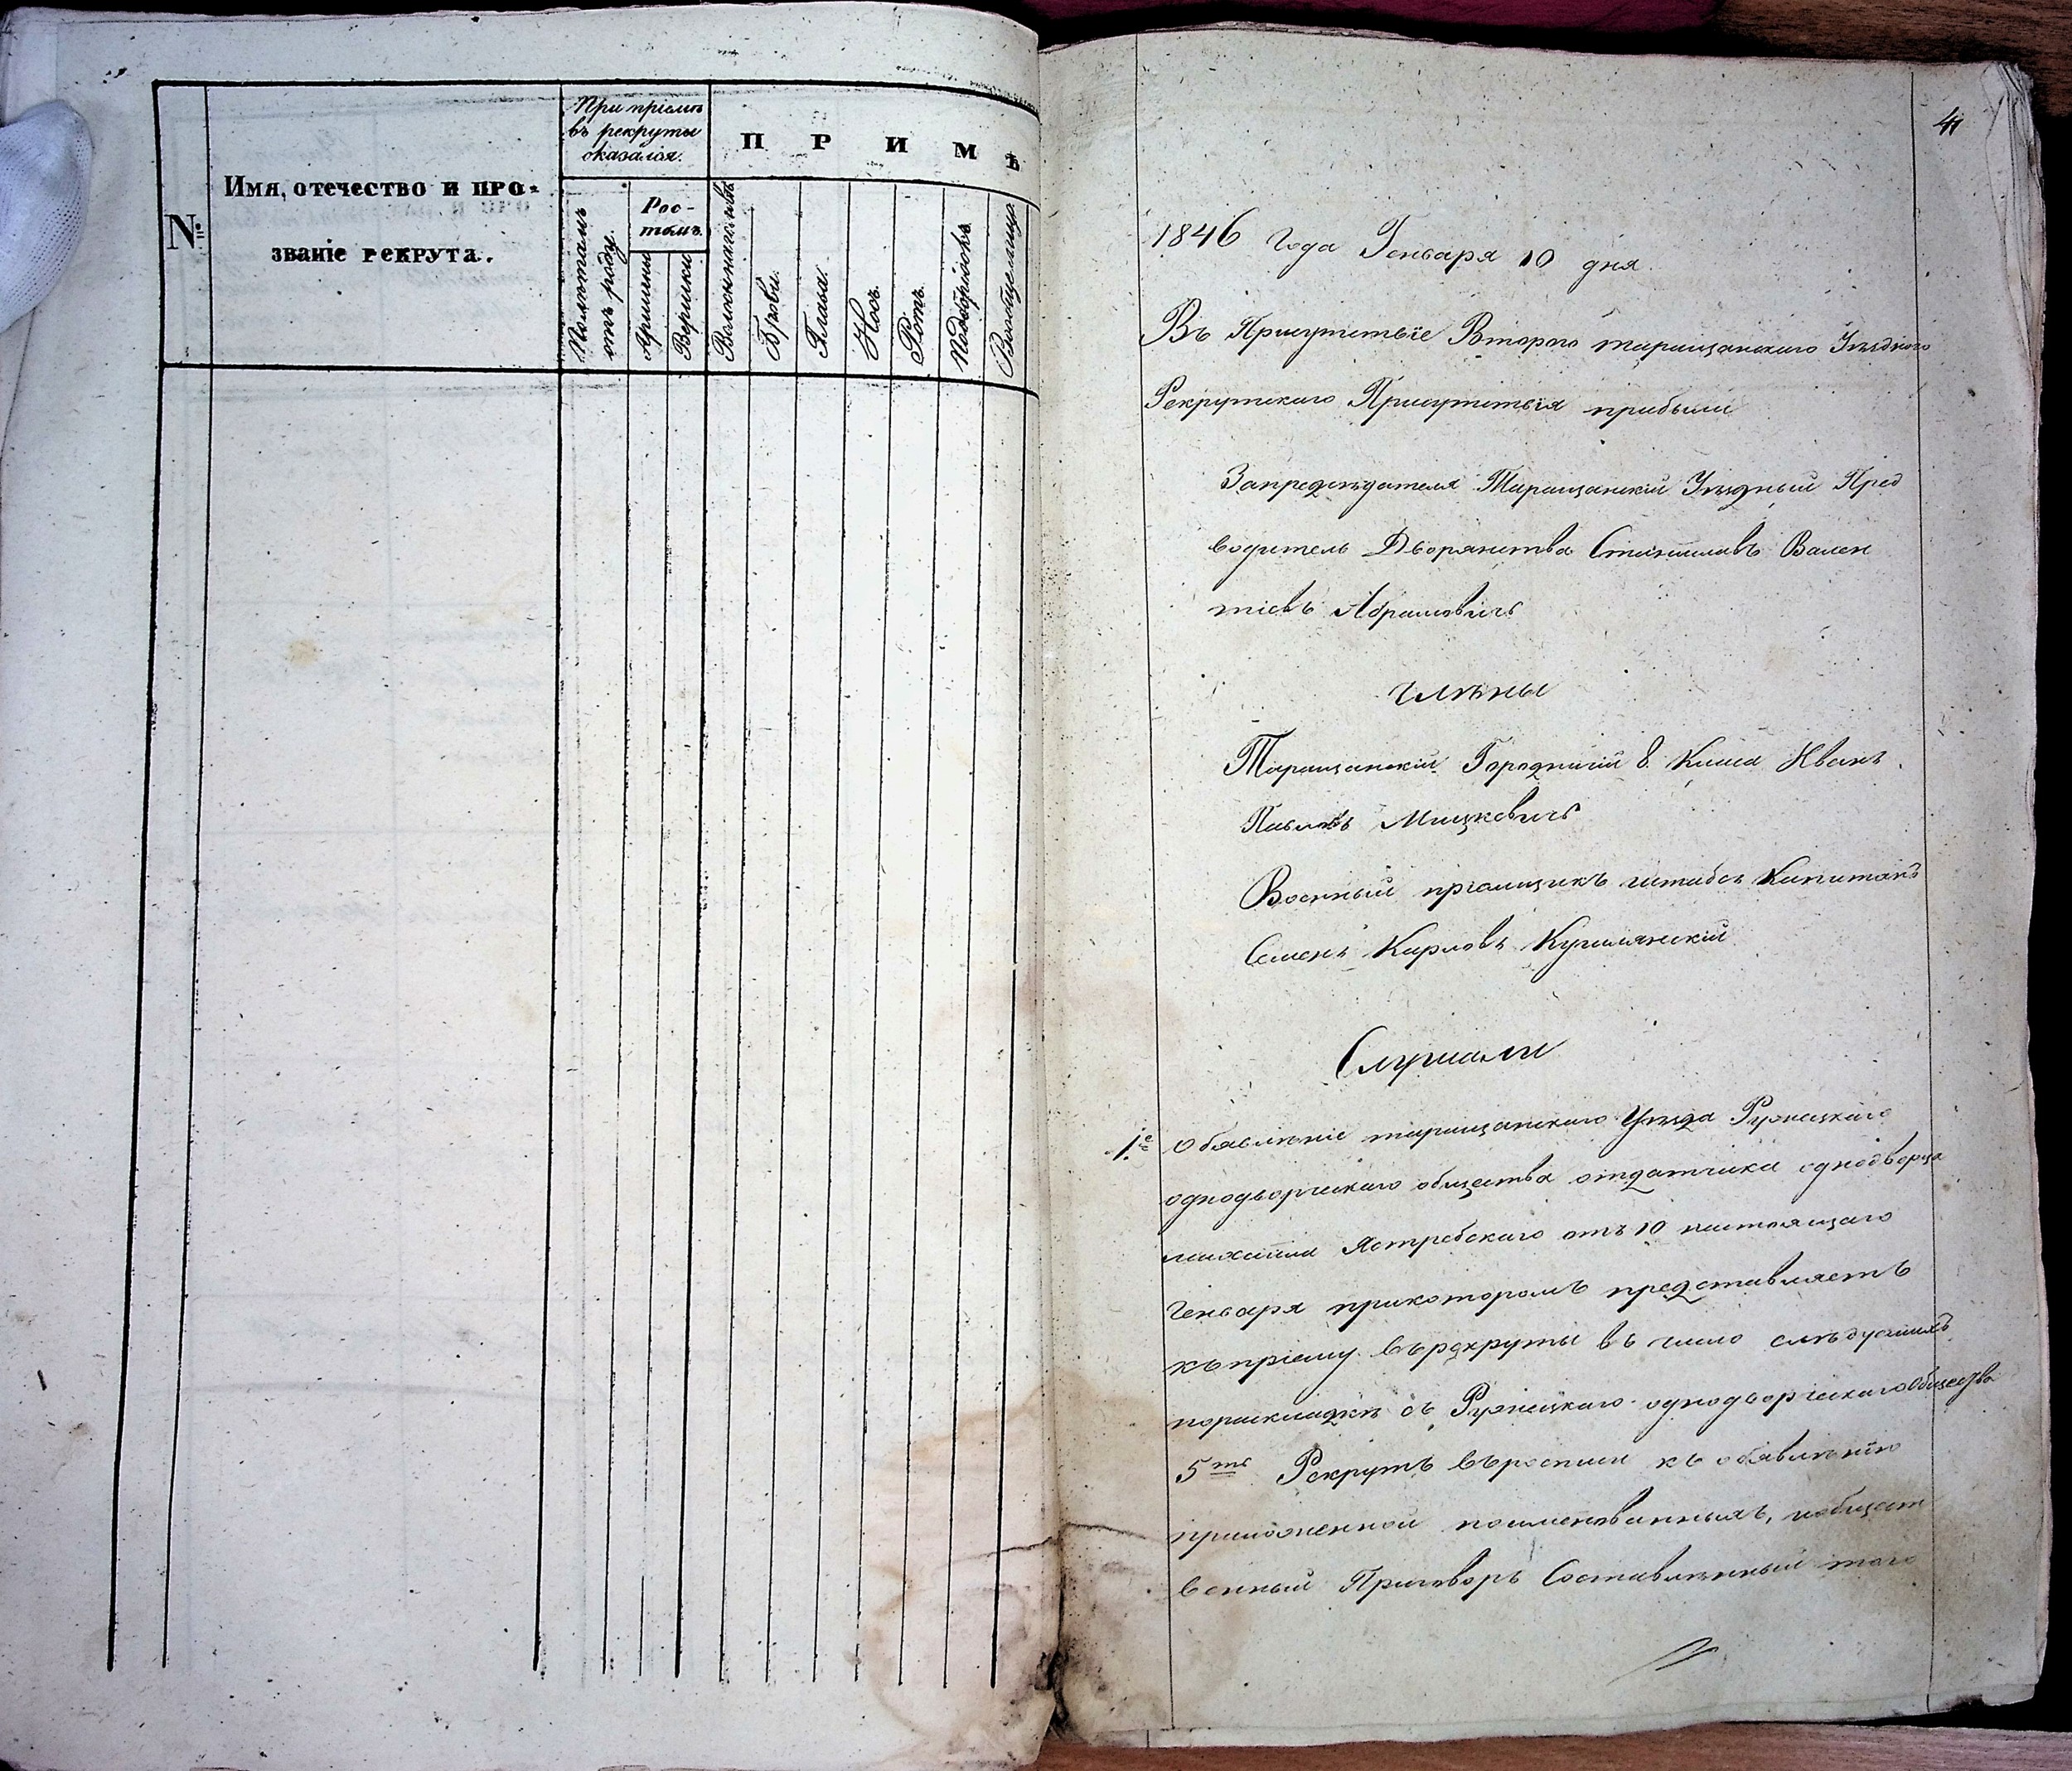 №
Имя, отечество и про-
званіе рекрута.
При пріемѣ
въ рекруты
оказался.
Рос-
томъ.
Аршины
Вершки
ПРИМѢ
Брови.
Глаза.
Носъ.
Ротъ.
Подбородокъ
41
1846 года Генваря 10 дня
Въ Присутствіе Второго таращанского Уѣздного
Рекрутского Присутствія прибыли
Запредсѣдателя Таращанскій Уѣздный Пред
водитель Дворянства Станиславъ Вален
тіевъ Абрамовичъ
члѣны
Таращанскій Городничій 8. Класа Иванъ
Павловъ Мицкевичъ
Военный пріемщикъ штабсъ Капитанъ
Семенъ Карловъ
Слушали
1.е Обявлѣніе таращанского Уѣзда Ружицкого
однодворческого общества отдатчика однодворца
михайла Ястребского отъ 10 настоящаго
Генваря прикоторомъ представляетъ
къпріему върекруты въ число слѣдуемыхъ
пораскладкѣ съ Ружицкого однодворческого Общества
5ть Рекрутъ въросписи къ обявлѣнію
приложенной поименованныхъ, иобщест
венный Приговоръ Составлѣнный того